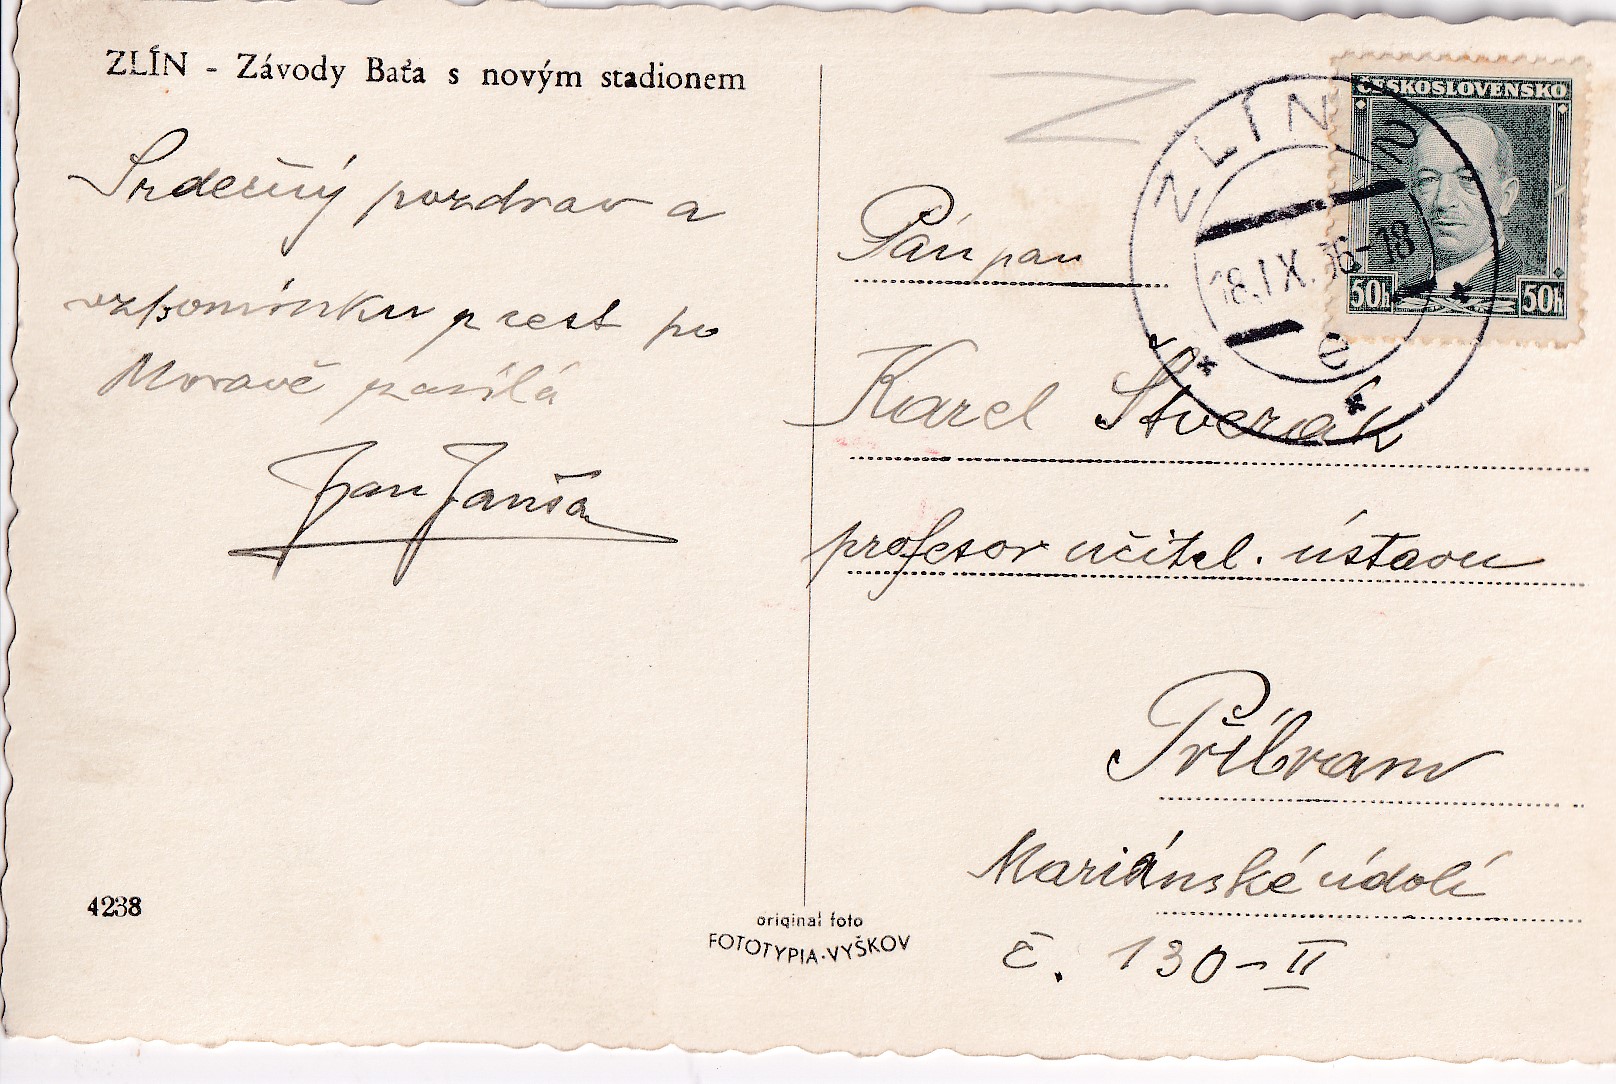 ZLÍN - Závody Baťa s novým stadionem
Srdečný pozdrav a
vzpomínku z cest po
Moravě zasílá
Jan Janša
4238
original foto
FOTOTYPIA-VYŠKOV
ČESKOSLOVENSKO
50h 50h
ZLÍN 2
18.IX.36-18
e
Pán pan
Karel Štverák
profesor učitel. ústavu
Příbram
Mariánské údolí
č. 130-II